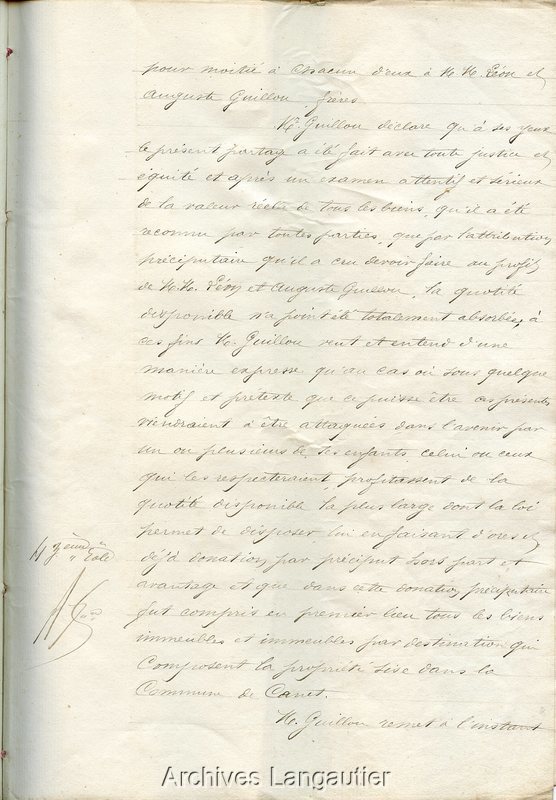 pour moitié à chacun d'eux à M.M. Léon et
Auguste Guillou, frères
Mr Guillou déclare qu'à ses yeux
le présent partage a été fait avec toute justice et
équité et après un examen attentif et sérieux
de la valeur réelle de tous les biens, qu'il a été
reconnu par toutes parties, que par l'attribution
préciputaire qu'il a cru devoir faire au profit
de M.M. Léon et Auguste Guillou, la quotité
disponible n'a point été totalement absorbée, à
ces fins M. Guillou veut et entend d'une
manière expresse qu'au cas où sous quelque
motif et prétexte que ce puisse être ces présentes
viendraient à être attaquées dans l'avenir par
un ou plusieurs de ses enfants celui ou ceux
qui les respecteraient profitassent de la
quotité disponible la plus large dont la loi
permet de disposer, lui en faisant d'ores et
déjà donation par préciput hors part et
avantage et que dans cette donation préciputaire
fut compris en premier lieu tous les biens
immeubles et immeubles par destination qui
composent la propriété sise dans la
Commune de Canet.
M. Guillou remet à l'instant
Archives Langautier